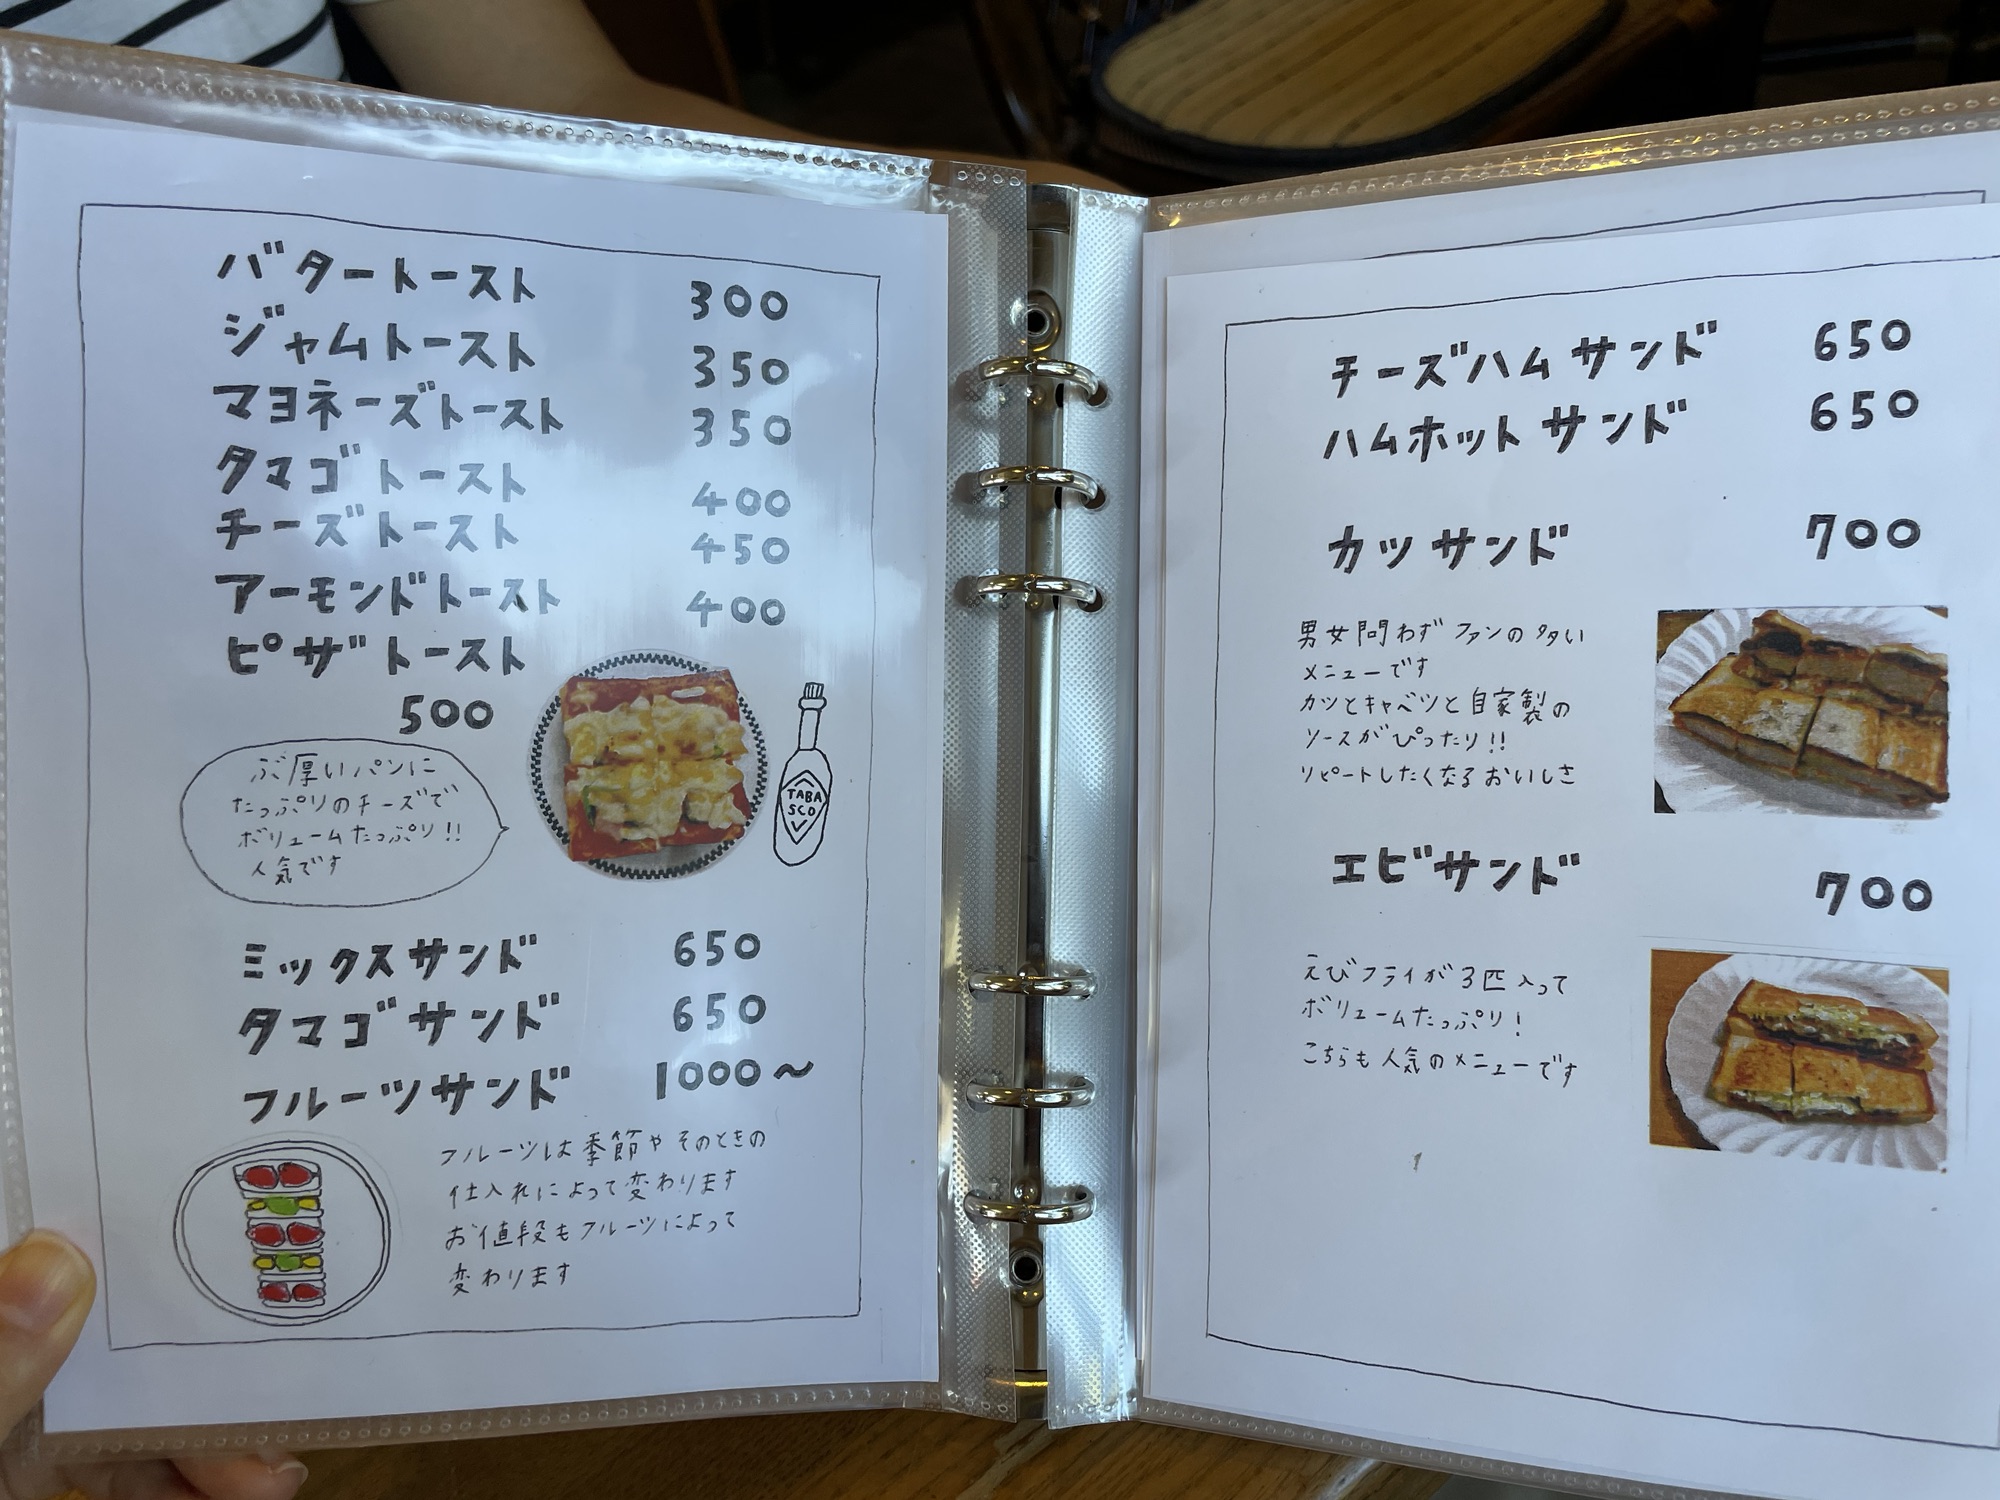 バタートースト 300
ジャムトースト 350
マヨネーズトースト 350
タマゴトースト 400
チーズトースト 450
アーモンドトースト 400
ピザトースト
500
ぶ厚いパンに
たっぷりのチーズで
ボリュームたっぷり!!
人気です
TABA
SCO
ミックスサンド 650
タマゴサンド 650
フルーツサンド 1000〜
フルーツは季節やそのときの
仕入れによって変わります
お値段もフルーツによって
変わります
チーズハムサンド 650
ハムホットサンド 650
カツサンド 700
男女問わずファンの多い
メニューです
カツとキャベツと自家製の
ソースがぴったり!!
リピートしたくなるおいしさ
エビサンド 700
えびフライが3匹入って
ボリュームたっぷり!
こちらも人気のメニューです